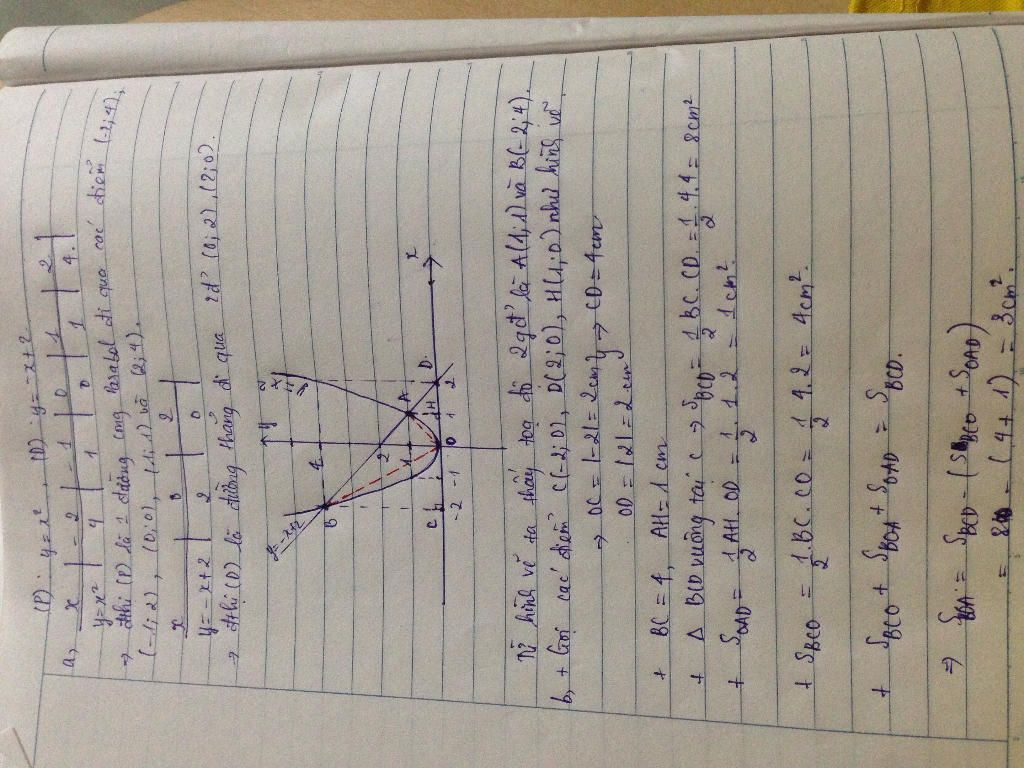 (P): y = x², (D): y = -x+2
a, x | -2 | -1 | 0 | 1 | 2 |
y=x² | 4 | 1 | 0 | 1 | 4 |
→ đthị (P) là 1 đường cong Parabol đi qua các điểm (-2; 4);
(-1; 2), (0; 0), (1; 1) và (2; 4).
x | 0 | 2 |
y = -x+2 | 2 | 0 |
→ đthị (D) là đường thẳng đi qua 2đ' (0; 2), (2; 0).
y
y=x²
y=-x+2
B
4
2
1
A
C
H
D
x
-2 -1 0 1 2
Từ hình vẽ ta thấy toạ độ 2gđ' là A(1; 1) và B(-2; 4).
b, + Gọi các điểm C(-2; 0), D(2; 0), H(1; 0) như hình vẽ
→ OC = |-2| = 2cm } → CD = 4cm
OD = |2| = 2cm
+ BC = 4, AH = 1 cm
+ Δ BCD vuông tại C → S_BCD = 1/2 BC. CD = 1/2 . 4. 4 = 8cm²
+ S_OAD = 1/2 AH. OD = 1/2 . 1. 2 = 1cm².
+ S_BCO = 1/2 . BC. CO = 1/2 4. 2 = 4cm².
+ S_BCO + S_BOA + S_OAD = S_BCD.
⇒ S_BOA = S_BCD - (S_BCO + S_OAD)
= 8 - (4 + 1) = 3cm².